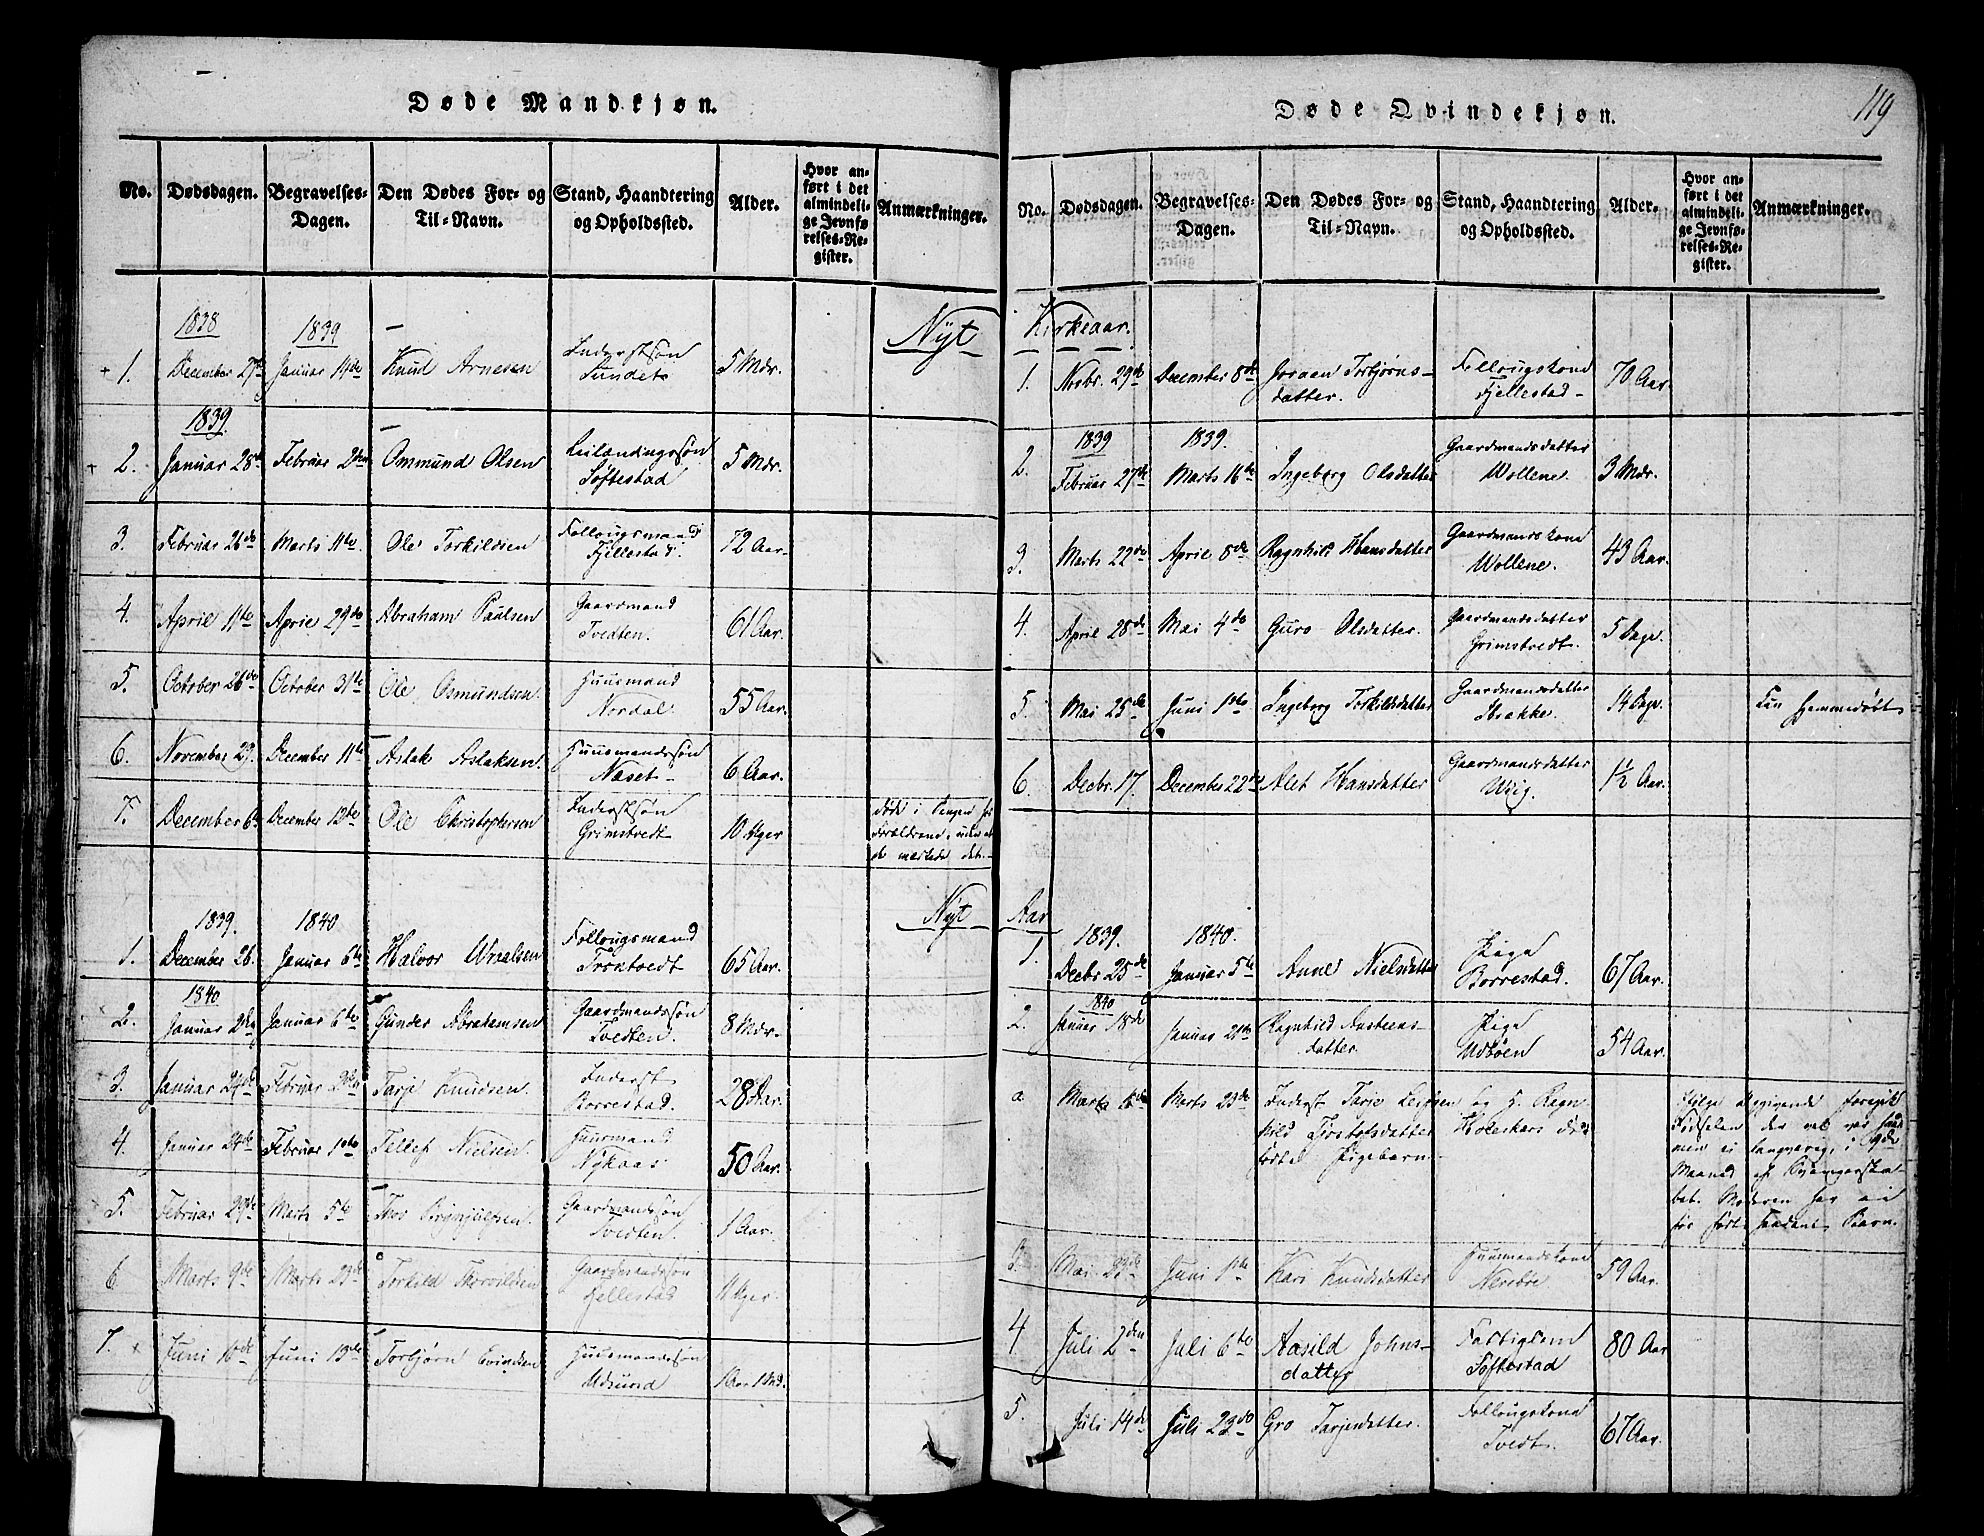 119
Døde Mandkjøn.
No. Dødsdagen. Begravelses-Dagen. Den Dødes For- og Til-Navn. Stand, Haandtering og Opholdssted. Alder. Hvor anført i det almindelige Jevnførelses-Register. Anmærkninger.
1838 1839 Nyt
1. December 27de Januar 11te Knud Arnesen Inderstsøn Sundet 5 Mdr.
1839.
2. Januar 28de Februar 2den Ommund Olsen Leilændingssøn Tøftestad 5 Mdr.
3. Februar 26de Marts 11te Ole Torkildsen Follougsmand Fjellestad. 72 Aar.
4. April 11te April 29de Abraham Paulsen Gaardmand Tvedten. 61 Aar.
5. October 26de October 31te Ole Osmundsen. Huusmand Nordal. 55 Aar.
6. November 29. December 11te Aslak Aslaksen. Huusmandssøn Naset 6 Aar.
7. December 6te December 12te Ole Christophersen Inderstsøn Grimstvedt 10 Uger døde i Sengen hos Forældrene, uden at de mærkede det.
Nyt
1839. 1840
1. December 26. Januar 6te Halvor Follougsmand 65 Aar.
1840
2. Januar 2den Januar 6te Gunder Abrahamsen Gaardmandssøn Tvedten. 8 Mdr.
3. Januar 24de Februar 2den Tarje Knudsen. Inderst Borrestad. 28 Aar.
4. Januar 24de Februar 1ste Tellef Nielsen. Huusmand Nykaas 50 Aar.
5. Februar 29de Marts 5te Thor Brynjulfsen. Gaardmandssøn Tvedten. 1 Aar.
6 Marts 9de Marts 23de Torkild Gaardmandssøn Fjellestad 11 Uger.
7. Juni 10de Juni 13de Torbjørn Evindsen Huusmandssøn Udsund 1 Aar 1 Md.
Døde Qvindekjøn.
No. Dødsdagen. Begravelses-Dagen. Den Dødes For- og Til-Navn. Stand, Haandtering og Opholdssted. Alder. Hvor anført i det almindelige Jevnførelses-Register. Anmærkninger.
Kirkeaar.
1. Novbr. 29de December 8de Joraen Torbjørnsdatter. Follougskone Fjellestad 70 Aar.
1839 1839.
2. Februar 27de Marts 16de Ingeborg Olsdatter Gaardmandsdatter Wollene. 3 Mdr.
3. Marts 22de April 8de Ragnhild Hansdatter Gaardmandskone Wollene. 43 Aar.
4. April 28de Mai 4de Guro Olsdatter. Gaardmandsdatter Grimstvedt. 5 Dage.
5. Mai 25de Juni 1ste Ingeborg Torkildsdatter Gaardmandsdatter Brække. 14 Dage. Kun hjemmedøbt
6. Decbr. 17. December 22de Alet Hansdatter Gaardmandsdatter 1½ Aar.
Aar
1839. 1840.
1. Decbr. 25de Januar 5te Anne Nielsdatter Pige Borrestad. 67 Aar.
1840
2. Januar 18de Januar 21de Ragnhild Austensdatter. Pige Udbøen 54 Aar.
a Marts Marts 23de Inderst Tarje og H. Ragnhild Holtskars dødfødte Pigebarn. Ifølge Opgivende foregik Fødselen der vel var haard men ei langvarig, i 9de Maaned af Svangerskabet. Moderen har ei før født saadant Barn.
3. Mai Juni 1ste Kari Knudsdatter Huusmandskone 59 Aar.
4 Juli 2den Juli 6te Aasild Johnsdatter Fattiglem Tøftestad 80 Aar
5. Juli 14de Juli 23de Gro Tarjesdatter. Follougskone Tvedt. 67 Aar.